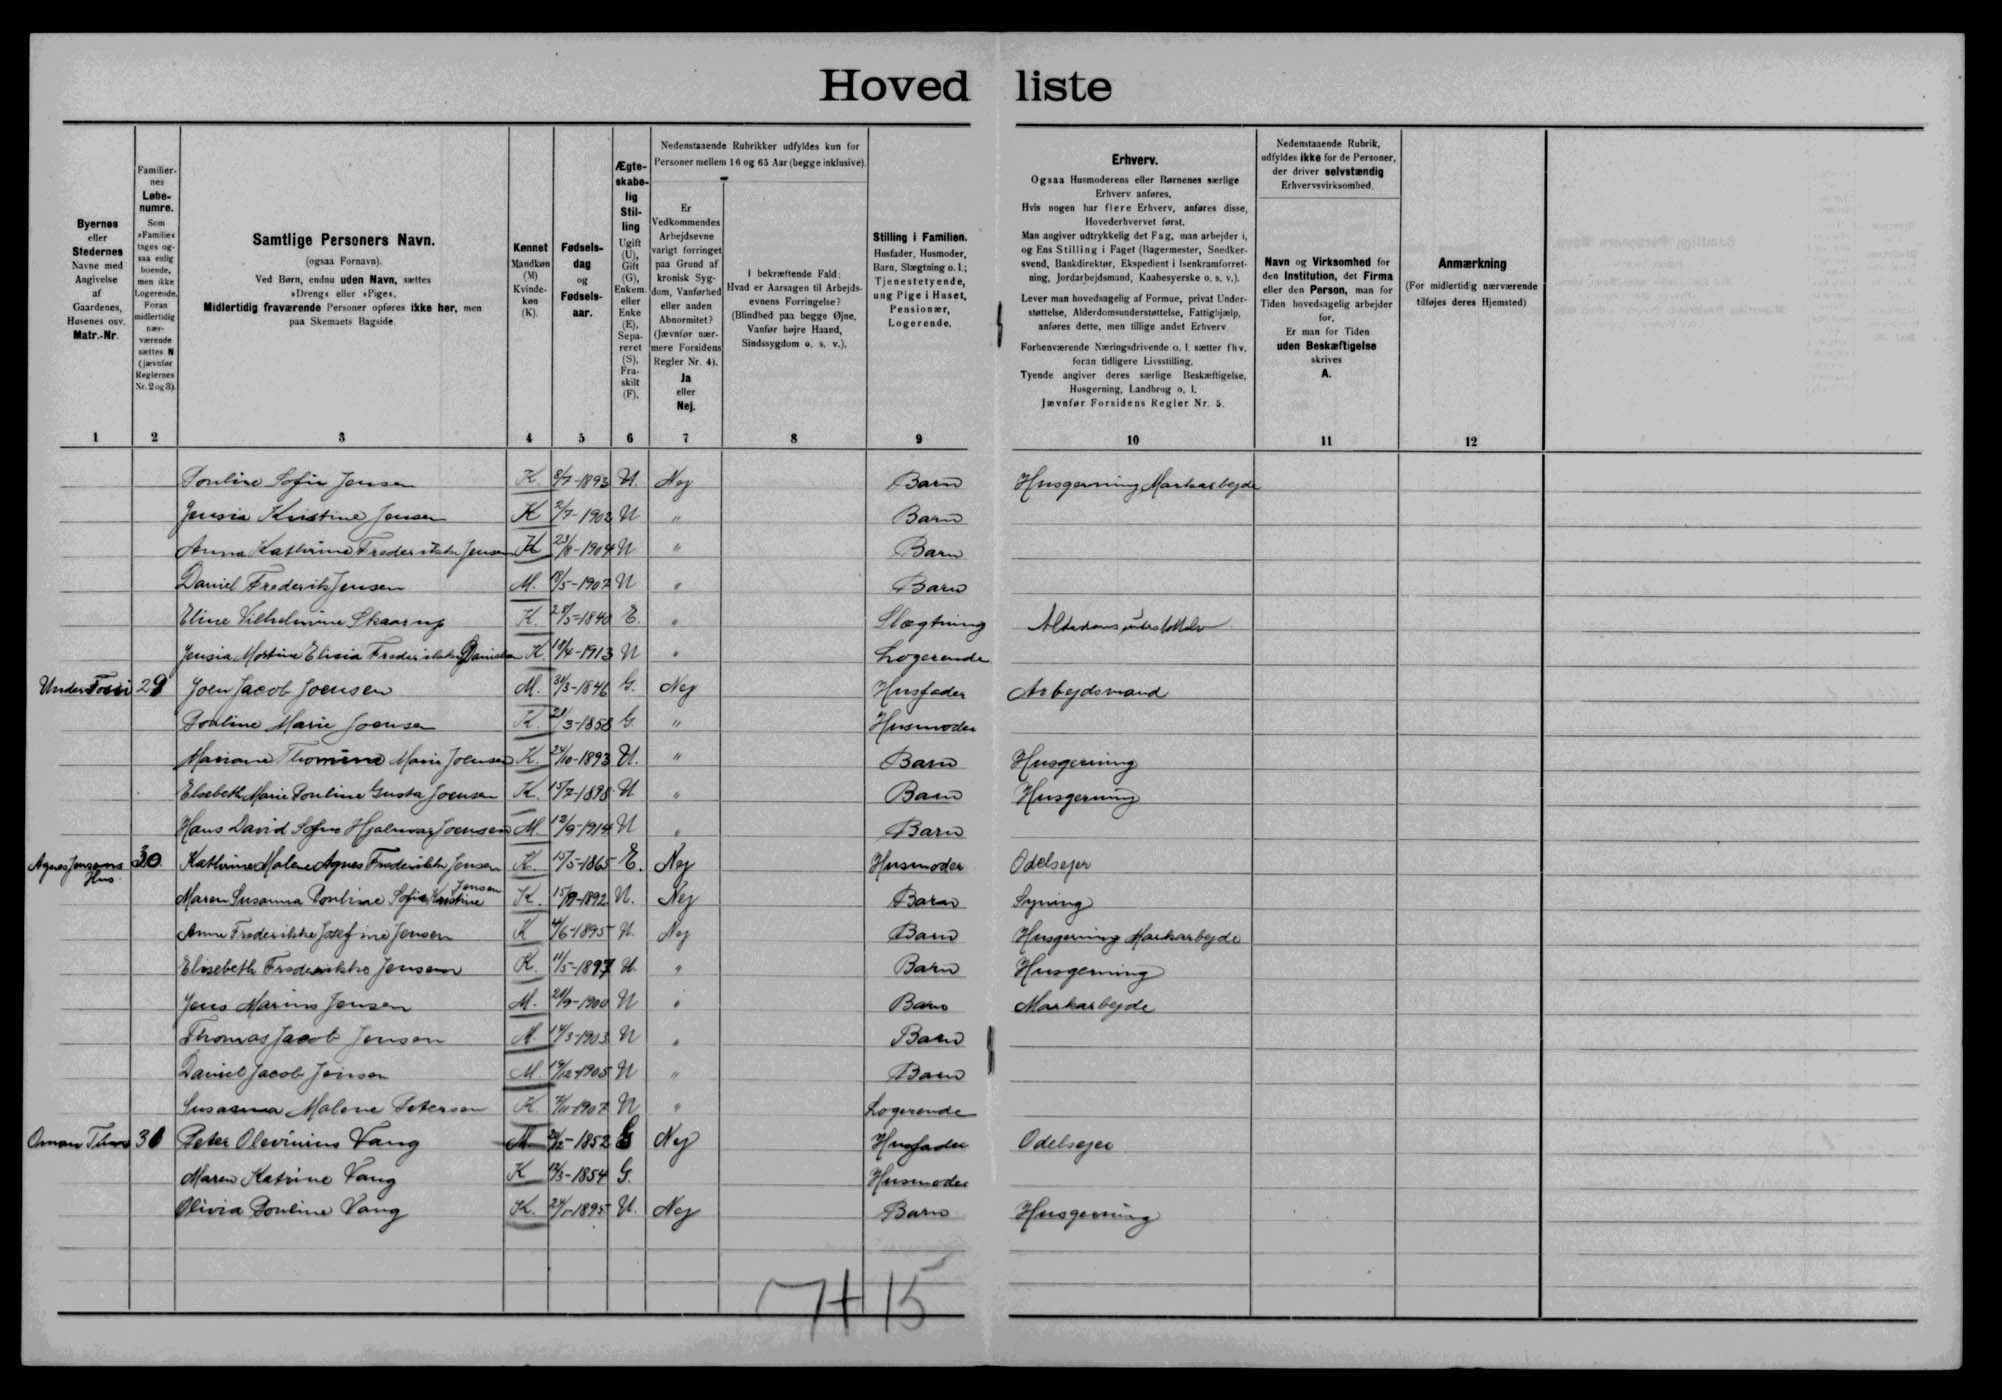 Hoved liste
Byernes
eller
Stedernes
Navne med
Angivelse
af
Gaardenes,
Husenes osv.
Matr.-Nr.
Familier-
nes
Løbe-
numre.
Som
»Familie«
tages og-
saa enlig
boende,
men ikke
Logerende.
Foran
midlertidig
nær-
værende
sættes N
(jævnfør
Reglernes
Nr. 2 og 3).
Samtlige Personers Navn.
(ogsaa Fornavn).
Ved Børn, endnu uden Navn, sættes
»Dreng« eller »Pige«.
Midlertidig fraværende Personer opføres ikke her, men
paa Skemaets Bagside.
Kønnet
Mandkøn
(M)
Kvinde-
køn
(K).
Fødsels-
dag
og
Fødsels-
aar.
Ægte-
skabe-
lig
Stil-
ling
Ugift
(U),
Gift
(G),
Enkem.
eller
Enke
(E),
Sepa-
reret
(S),
Fra-
skilt
(F).
Nedenstaaende Rubrikker udfyldes kun for
Personer mellem 16 og 65 Aar (begge inklusive).
Er
Vedkommendes
Arbejdsevne
varigt forringet
paa Grund af
kronisk Syg-
dom, Vanførhed
eller anden
Abnormitet?
(Jævnfør nær-
mere Forsidens
Regler Nr. 4).
Ja
eller
Nej.
I bekræftende Fald:
Hvad er Aarsagen til Arbejds-
evnens Forringelse?
(Blindhed paa begge Øjne,
Vanfør højre Haand,
Sindssygdom o. s. v.).
Stilling i Familien.
Husfader, Husmoder,
Barn, Slægtning o. l.;
Tjenestetyende,
ung Pige i Huset,
Pensionær,
Logerende.
Erhverv.
Ogsaa Husmoderens eller Børnenes særlige
Erhverv anføres.
Hvis nogen har flere Erhverv, anføres disse,
Hovederhvervet først.
Man angiver udtrykkelig det Fag, man arbejder i,
og Ens Stilling i Faget (Bagermester, Snedker-
svend, Bankdirektør, Ekspedient i Isenkramforret-
ning, Jordarbejdsmand, Kaabesyerske o. s. v.).
Lever man hovedsagelig af Formue, privat Under-
støttelse, Alderdomsunderstøttelse, Fattighjælp,
anføres dette, men tillige andet Erhverv
Forhenværende Næringsdrivende o. l. sætter fhv.
foran tidligere Livsstilling.
Tyende angiver deres særlige Beskæftigelse,
Husgerning, Landbrug o. l.
Jævnfør Forsidens Regler Nr. 5.
Nedenstaaende Rubrik,
udfyldes ikke for de Personer,
der driver selvstændig
Erhvervsvirksomhed.
Navn og Virksomhed for
den Institution, det Firma
eller den Person, man for
Tiden hovedsagelig arbejder
for.
Er man for Tiden
uden Beskæftigelse
skrives
A.
Anmærkning
(For midlertidig nærværende
tilføjes deres Hjemsted)
1 2 3 4 5 6 7 8 9 10 11 12
Pouline Sofie Jensen K. 8/7-1893 U. Nej Barn Husgerning Markarbejde
Jensia Kristine Jensen K 2/7-1902 U " Barn
Anna Kathrine Frederikke Jensen K 23/8-1904 U " Barn
Daniel Frederik Jensen M. /5-1907 U " Barn
Eline Vilhelmine Skaarup K. 28/5-1840 E. " Slægtning
Jensia Mortine Elisia Frederikke Danielsen K 18/4-1913 U " Logerende
29 Joen Jacob Joensen M. 31/3-1846 G. Nej Husfader Arbejdsmand
Pouline Marie Joensen K. 21/3-1858 G. " Husmoder
Mariane Thomina Marie Joensen K. 24/10-1893 U. " Barn Husgerning
Elsebeth Marie Pouline Gusta Joensen K. 15/2-1898 U " Barn Husgerning
Hans David Sofus Hjalmar Joensen M. 12/9-1914 U " Barn
Agnes Jensens Hus 30 Kathrine Malene Agnes Frederikke Jensen K. 15/5-1865 E. Nej Husmoder Odelsejer
Maren Susanna Pouline Sofie Kristine Jensen K. 15/9-1892 U. Nej Barn Syning
Anne Frederikke Josefine Jensen K 4/6-1895 U. Nej Barn Husgerning Markarbejde
Elisebeth Frederikke Jensen K. 11/5-1897 U. " Barn Husgerning
Jens Marius Jensen M. 21/9-1900 U " Barn Markarbejde
Thomas Jacob Jensen M. 14/3-1903 U " Barn
Daniel Jacob Jensen M. 19/12-1905 U " Barn
Susanna Malene Petersen K. /11-1907 U " Logerende
31 Peter Olevinius Vang M. /12-1852 G Nej Husfader Odelsejer
Maren Katrine Vang K 12/3-1854 G. Husmoder
Olivia Pouline Vang K. 24/1-1895 U. Nej Barn Husgerning
7+15